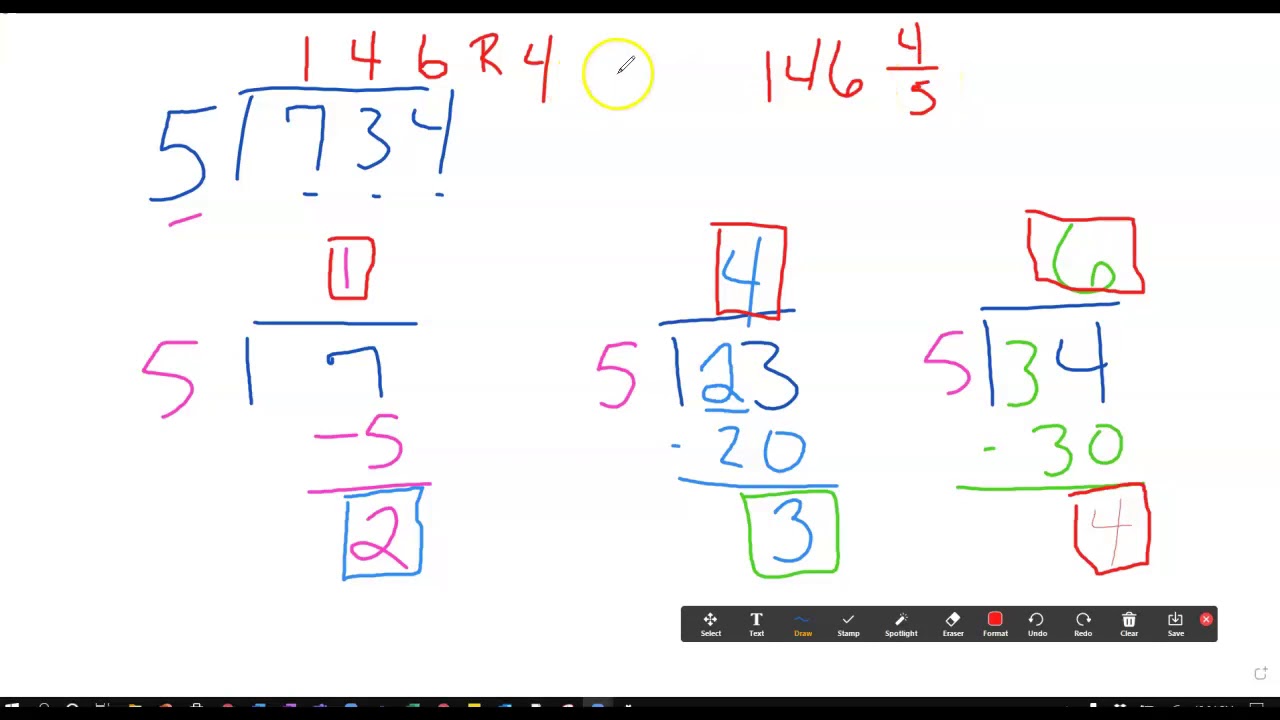 1 4 6 R 4
146 4/5
5 734
1
4
6
5 7
5 23
5 34
-5
- 20
- 30
2
3
4
Select Text Draw Stamp Spotlight Eraser Format Undo Redo Clear Save